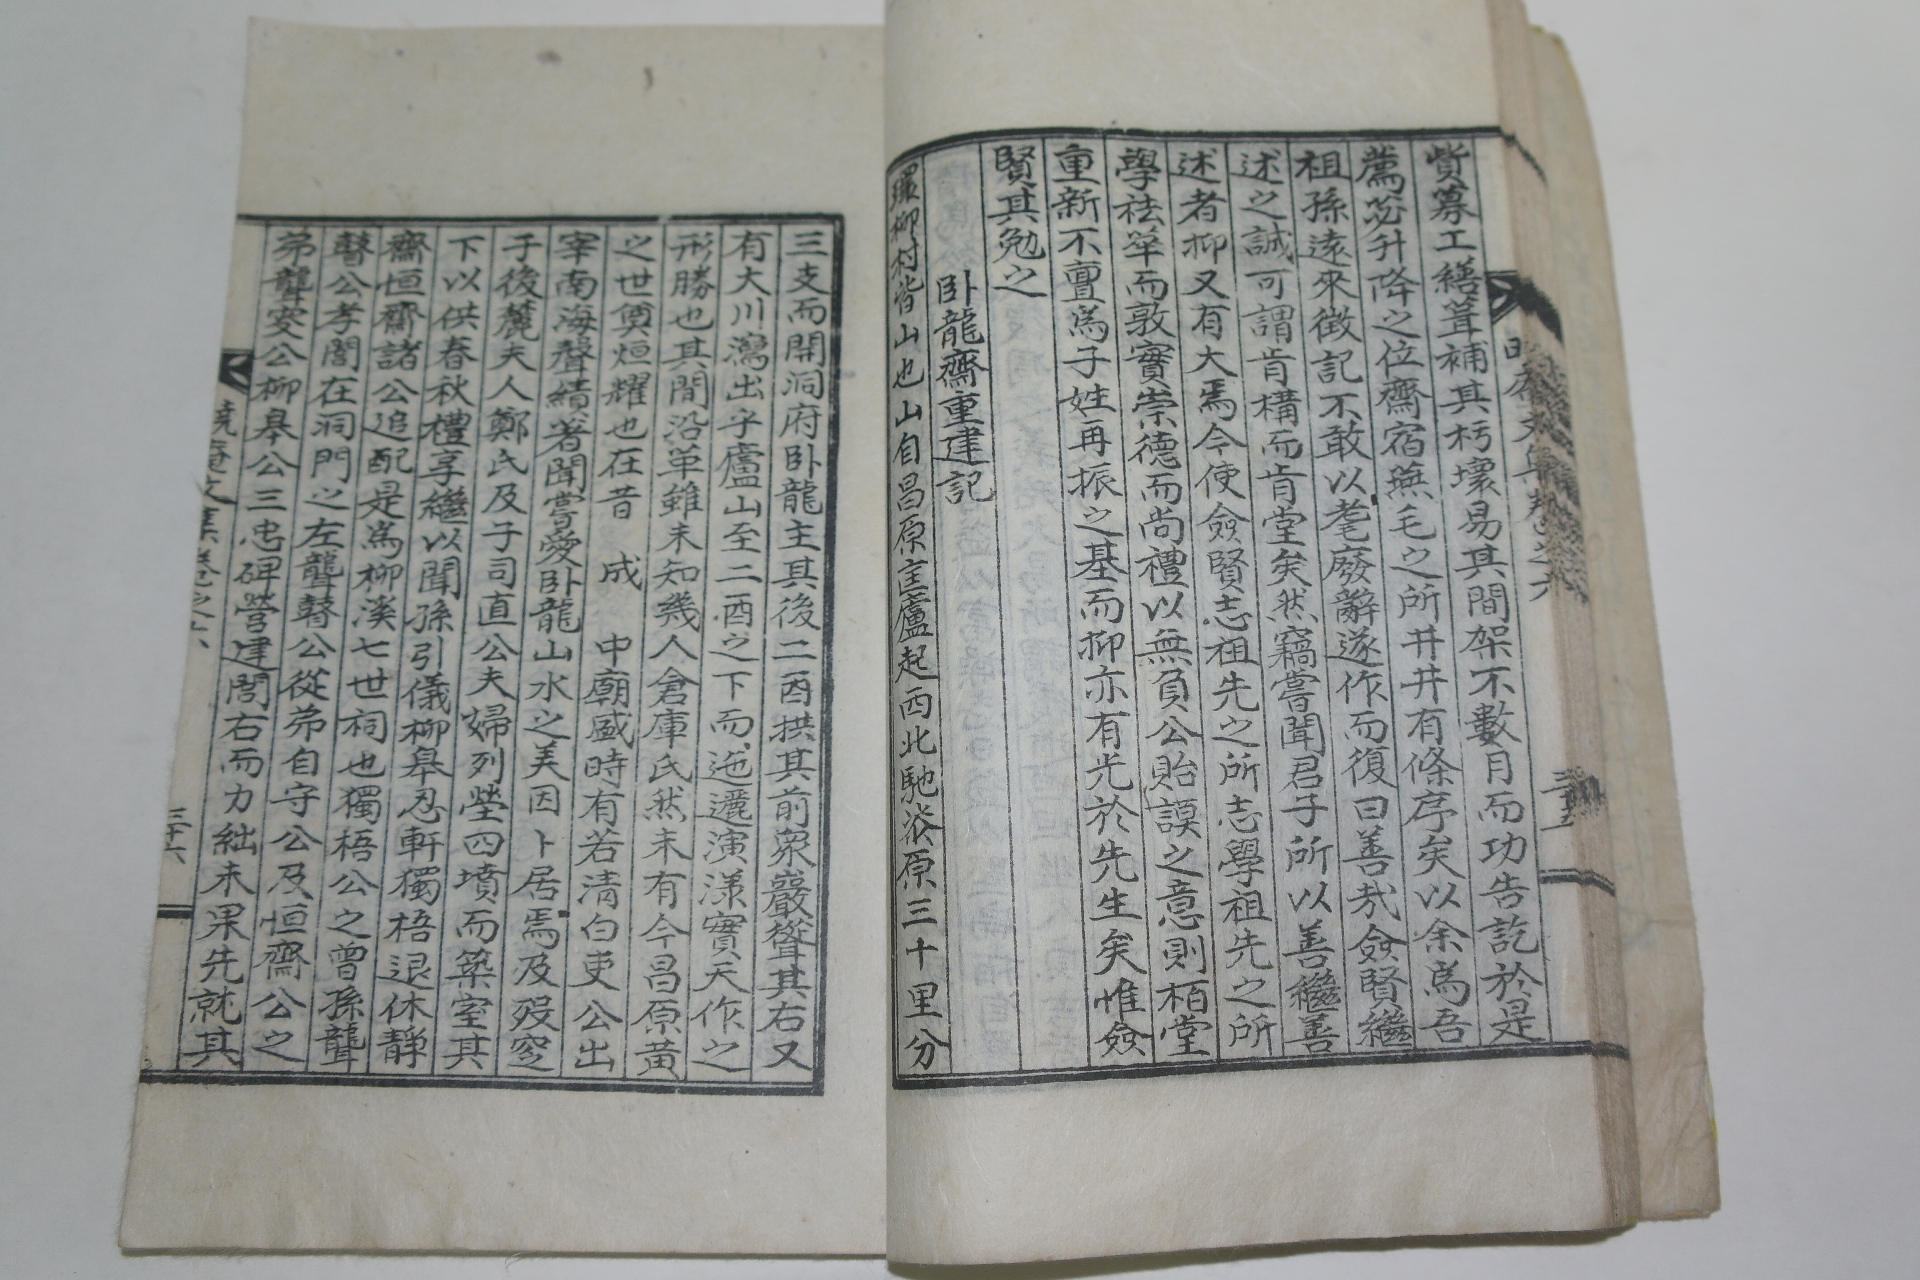 貲募工繕葺補其朽壞易其間架不數月而功告訖於是
薦苾升降之位齋宿蕪毛之所井井有條序矣以余爲吾
祖孫遠來徵記不敢以耄廢辭遂作而復曰善哉僉賢繼
述之誠可謂肯構而肯堂矣然竊嘗聞君子所以善繼善
述者抑又有大焉今使僉賢志祖先之所志學祖先之所
學祛華而敦實崇德而尚禮以無負公貽謨之意則栢堂
重新不亶爲子姓再振之基而抑亦有光於先生矣惟僉
賢其勉之
臥龍齋重建記
環柳村皆山也山自昌原匡廬起西北馳漆原三十里分
三支而開洞府臥龍主其後二酉拱其前衆巖聳其右又
有大川瀉出乎廬山至二酉之下而迤邐演漾實天作之
形勝也其間沿革雖未知幾人倉庫氏然未有今昌原黃
之世賁烜耀也在昔 成 中廟盛時有若淸白吏公出
宰南海聲績著聞嘗愛臥龍山水之美因卜居焉及歿窆
子後麓夫人鄭氏及子司直公夫婦列塋四墳而築室其
下以供春秋禮享繼以聞孫引儀柳皐忍軒獨梧退休靜
齋恒齋諸公追配是爲柳溪七世祠也獨梧公之曾孫聾
瞽公孝閭在洞門之左聾瞽公從弟自守公及恒齋公之
弟聾安公柳皐公三忠碑營建閭右而力絀未果先就其
三十六